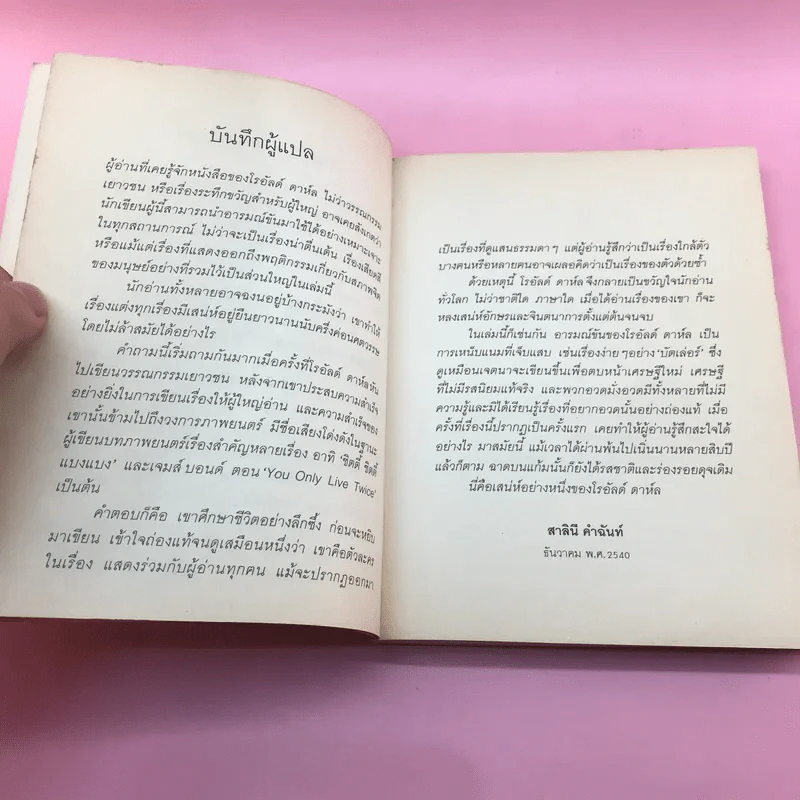 บันทึกผู้แปล
ผู้อ่านที่เคยรู้จักหนังสือของโรอัลด์ ดาห์ล ไม่ว่าวรรณกรรม
เยาวชน หรือเรื่องระทึกขวัญสำหรับผู้ใหญ่ อาจเคยสังเกตว่า
นักเขียนผู้นี้สามารถนำอารมณ์ขันมาใช้ได้อย่างเหมาะเจาะ
ในทุกสถานการณ์ ไม่ว่าจะเป็นเรื่องน่าตื่นเต้น เรื่องเสียดสี
หรือแม้แต่เรื่องที่แสดงออกถึงพฤติกรรมเกี่ยวกับสภาพจิต
ของมนุษย์อย่างที่รวมไว้เป็นส่วนใหญ่ในเล่มนี้
นักอ่านทั้งหลายอาจฉงนอยู่บ้างกระมังว่า เขาทำให้
เรื่องแต่งทุกเรื่องมีเสน่ห์อยู่ยืนยาวนานนับครึ่งค่อนศตวรรษ
โดยไม่ล้าสมัยได้อย่างไร
คำถามนี้เริ่มถามกันมากเมื่อครั้งที่โรอัลด์ ดาห์ล หัน
ไปเขียนวรรณกรรมเยาวชน หลังจากเขาประสบความสำเร็จ
อย่างยิ่งในการเขียนเรื่องให้ผู้ใหญ่อ่าน และความสำเร็จของ
เขานั้นข้ามไปถึงวงการภาพยนตร์ มีชื่อเสียงโด่งดังในฐานะ
ผู้เขียนบทภาพยนตร์เรื่องสำคัญหลายเรื่อง อาทิ 'ชิตตี้ ชิตตี้
แบงแบง' และเจมส์ บอนด์ ตอน 'You Only Live Twice'
เป็นต้น
คำตอบก็คือ เขาศึกษาชีวิตอย่างลึกซึ้ง ก่อนจะหยิบ
มาเขียน เข้าใจถ่องแท้จนดูเสมือนหนึ่งว่า เขาคือตัวละคร
ในเรื่อง แสดงร่วมกับผู้อ่านทุกคน แม้จะปรากฏออกมา
เป็นเรื่องที่ดูแสนธรรมดาๆ แต่ผู้อ่านรู้สึกว่าเป็นเรื่องใกล้ตัว
บางคนหรือหลายคนอาจเผลอคิดว่าเป็นเรื่องของตัวด้วยซ้ำ
ด้วยเหตุนี้ โรอัลด์ ดาห์ล จึงกลายเป็นขวัญใจนักอ่าน
ทั่วโลก ไม่ว่าชาติใด ภาษาใด เมื่อได้อ่านเรื่องของเขา ก็จะ
หลงเสน่ห์อักษรและจินตนาการตั้งแต่ต้นจนจบ
ในเล่มนี้ก็เช่นกัน อารมณ์ขันของโรอัลด์ ดาห์ล เป็น
การเหน็บแนมที่เจ็บแสบ เช่นเรื่องง่ายๆ อย่าง 'บัตเล่อร์' ซึ่ง
ดูเหมือนเจตนาจะเขียนขึ้นเพื่อตบหน้าเศรษฐีใหม่ เศรษฐี
ที่ไม่มีรสนิยมแท้จริง และพวกอวดมั่งอวดมีทั้งหลายที่ไม่มี
ความรู้และมิได้เรียนรู้เรื่องที่อยากอวดนั้นอย่างถ่องแท้ เมื่อ
ครั้งที่เรื่องนี้ปรากฏเป็นครั้งแรก เคยทำให้ผู้อ่านรู้สึกสะใจได้
อย่างไร มาสมัยนี้ แม้เวลาได้ผ่านพ้นไปเนิ่นนานหลายสิบปี
แล้วก็ตาม ฉาดบนแก้มนั้นก็ยังได้รสชาติและร่องรอยดุจเดิม
นี่คือเสน่ห์อย่างหนึ่งของโรอัลด์ ดาห์ล
สาลินี คำฉันท์
ธันวาคม พ.ศ.2540